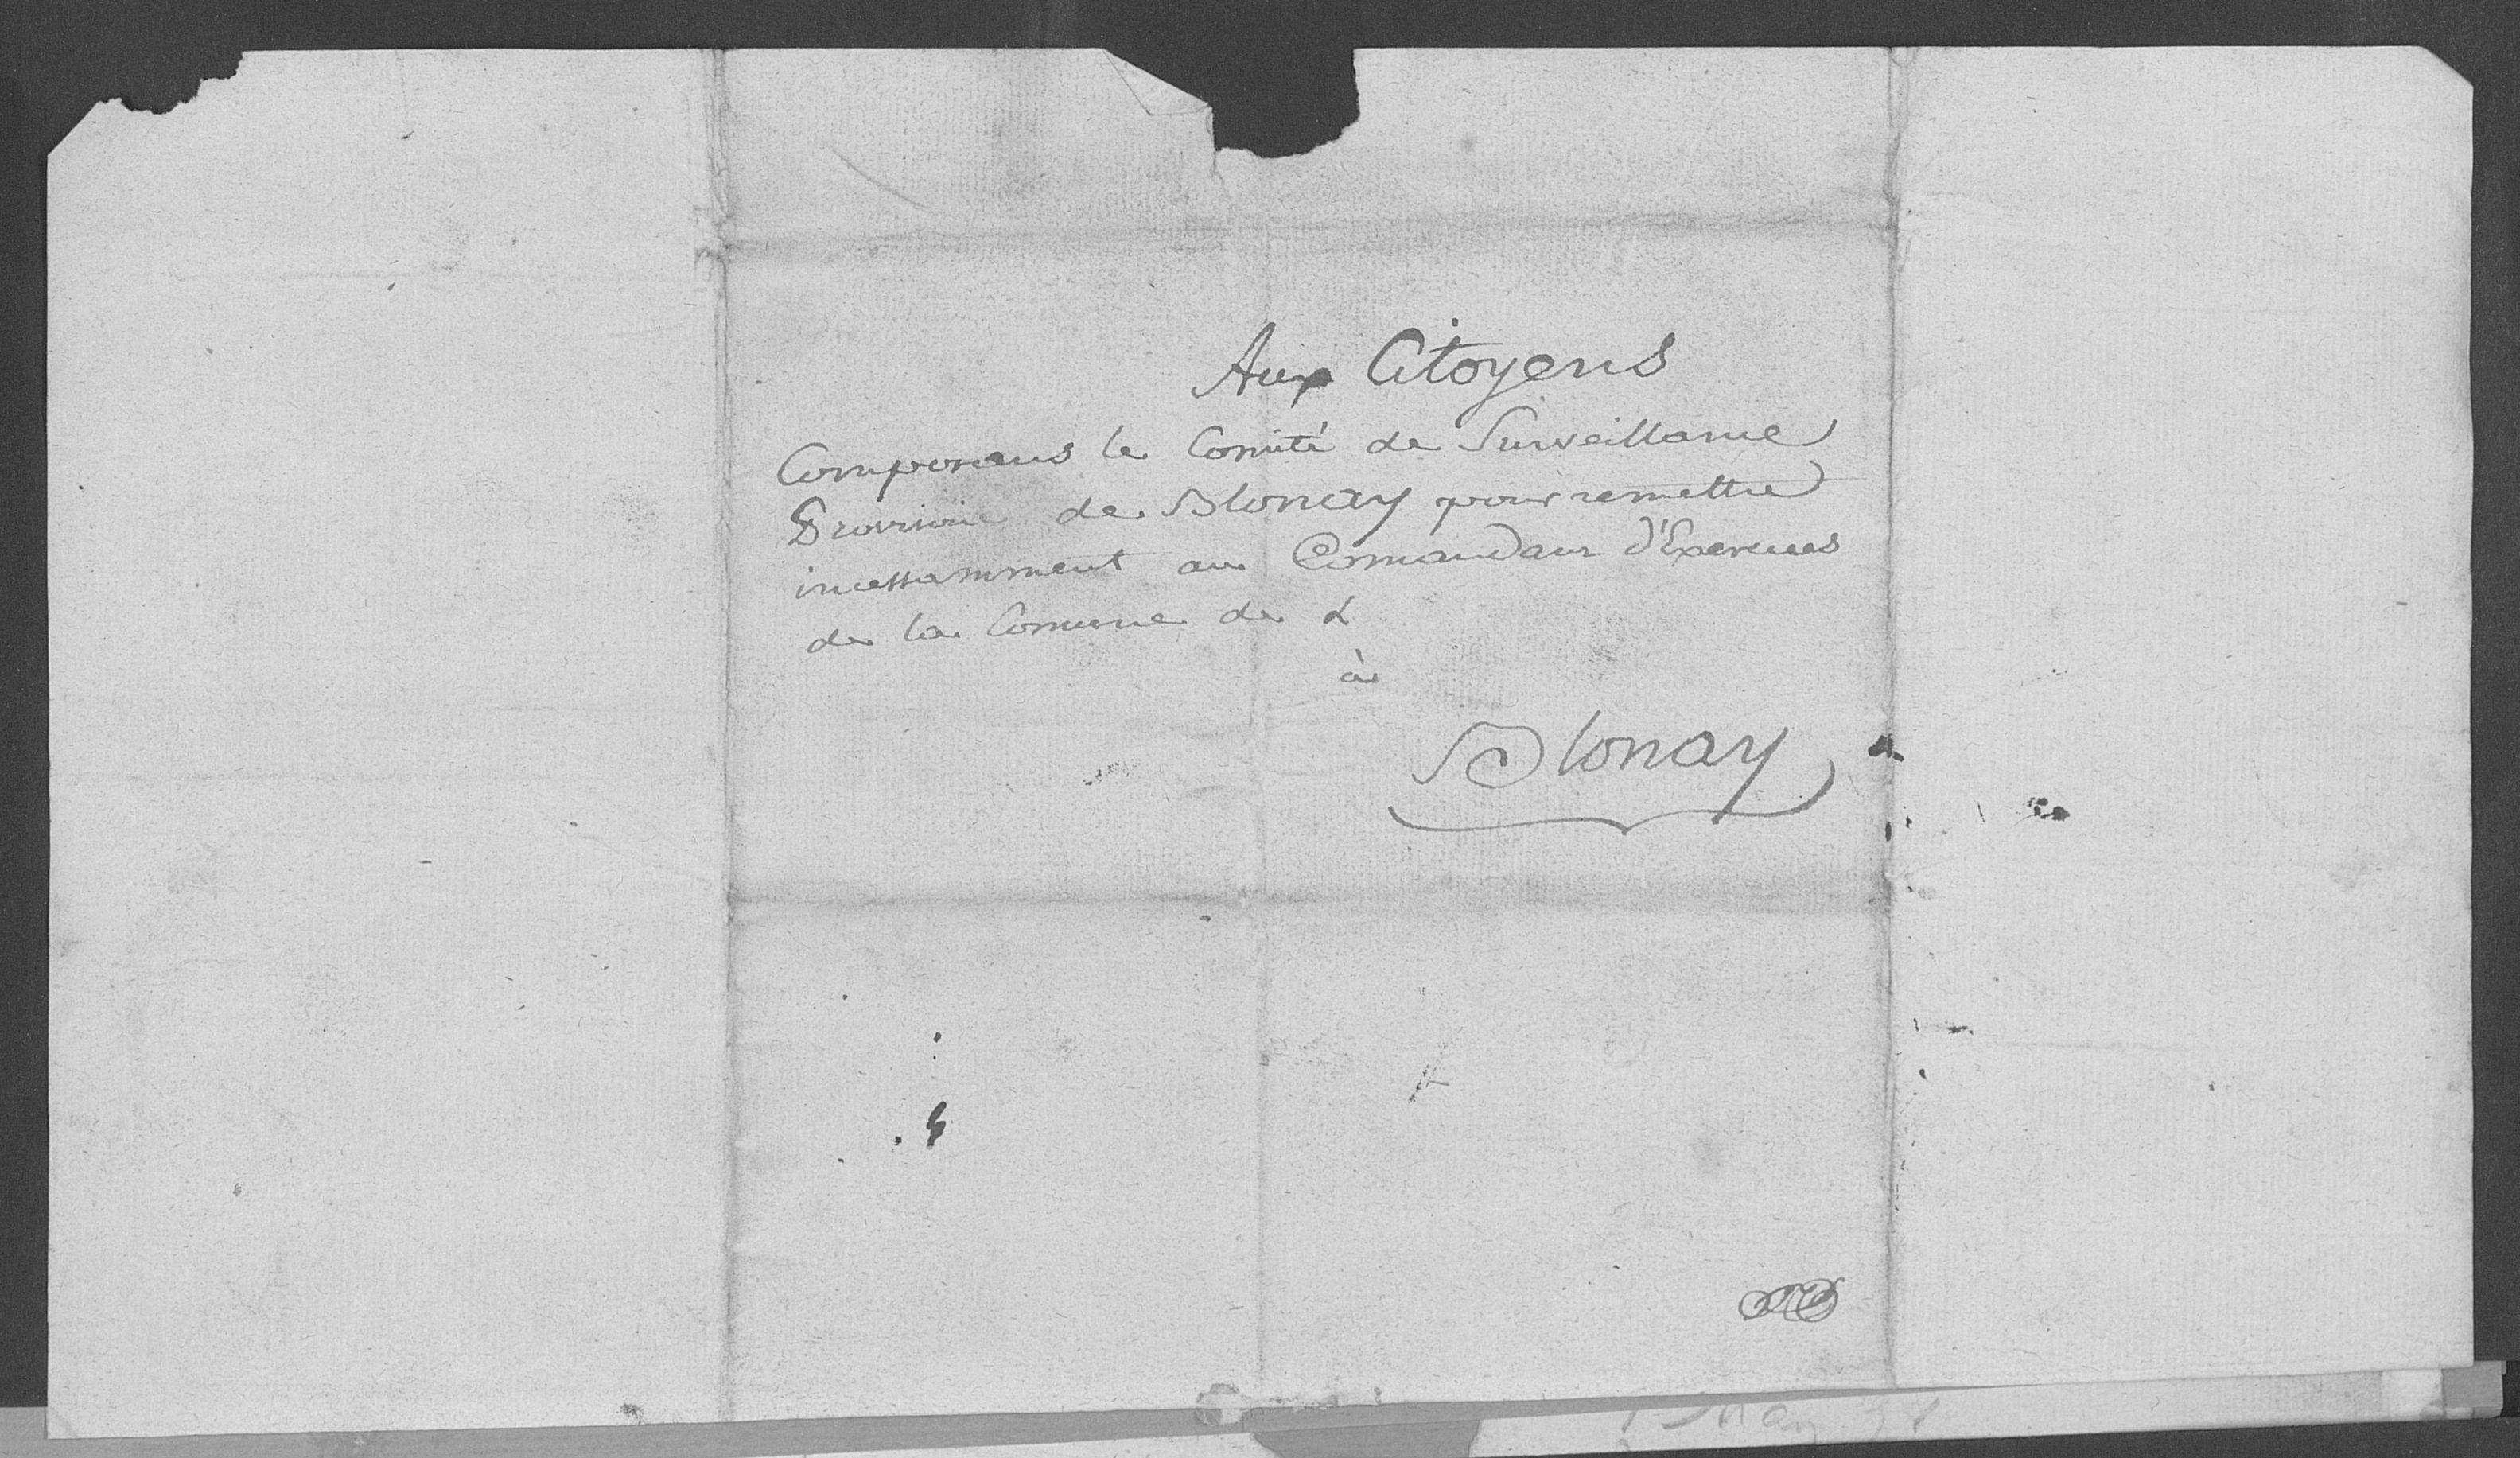 Aux Citoyens
Composans le Comité de Surveillance
Provisoire de Blonay pour remettre
incessamment au Comandant d'Exercices
de la Comune de
à
Blonay